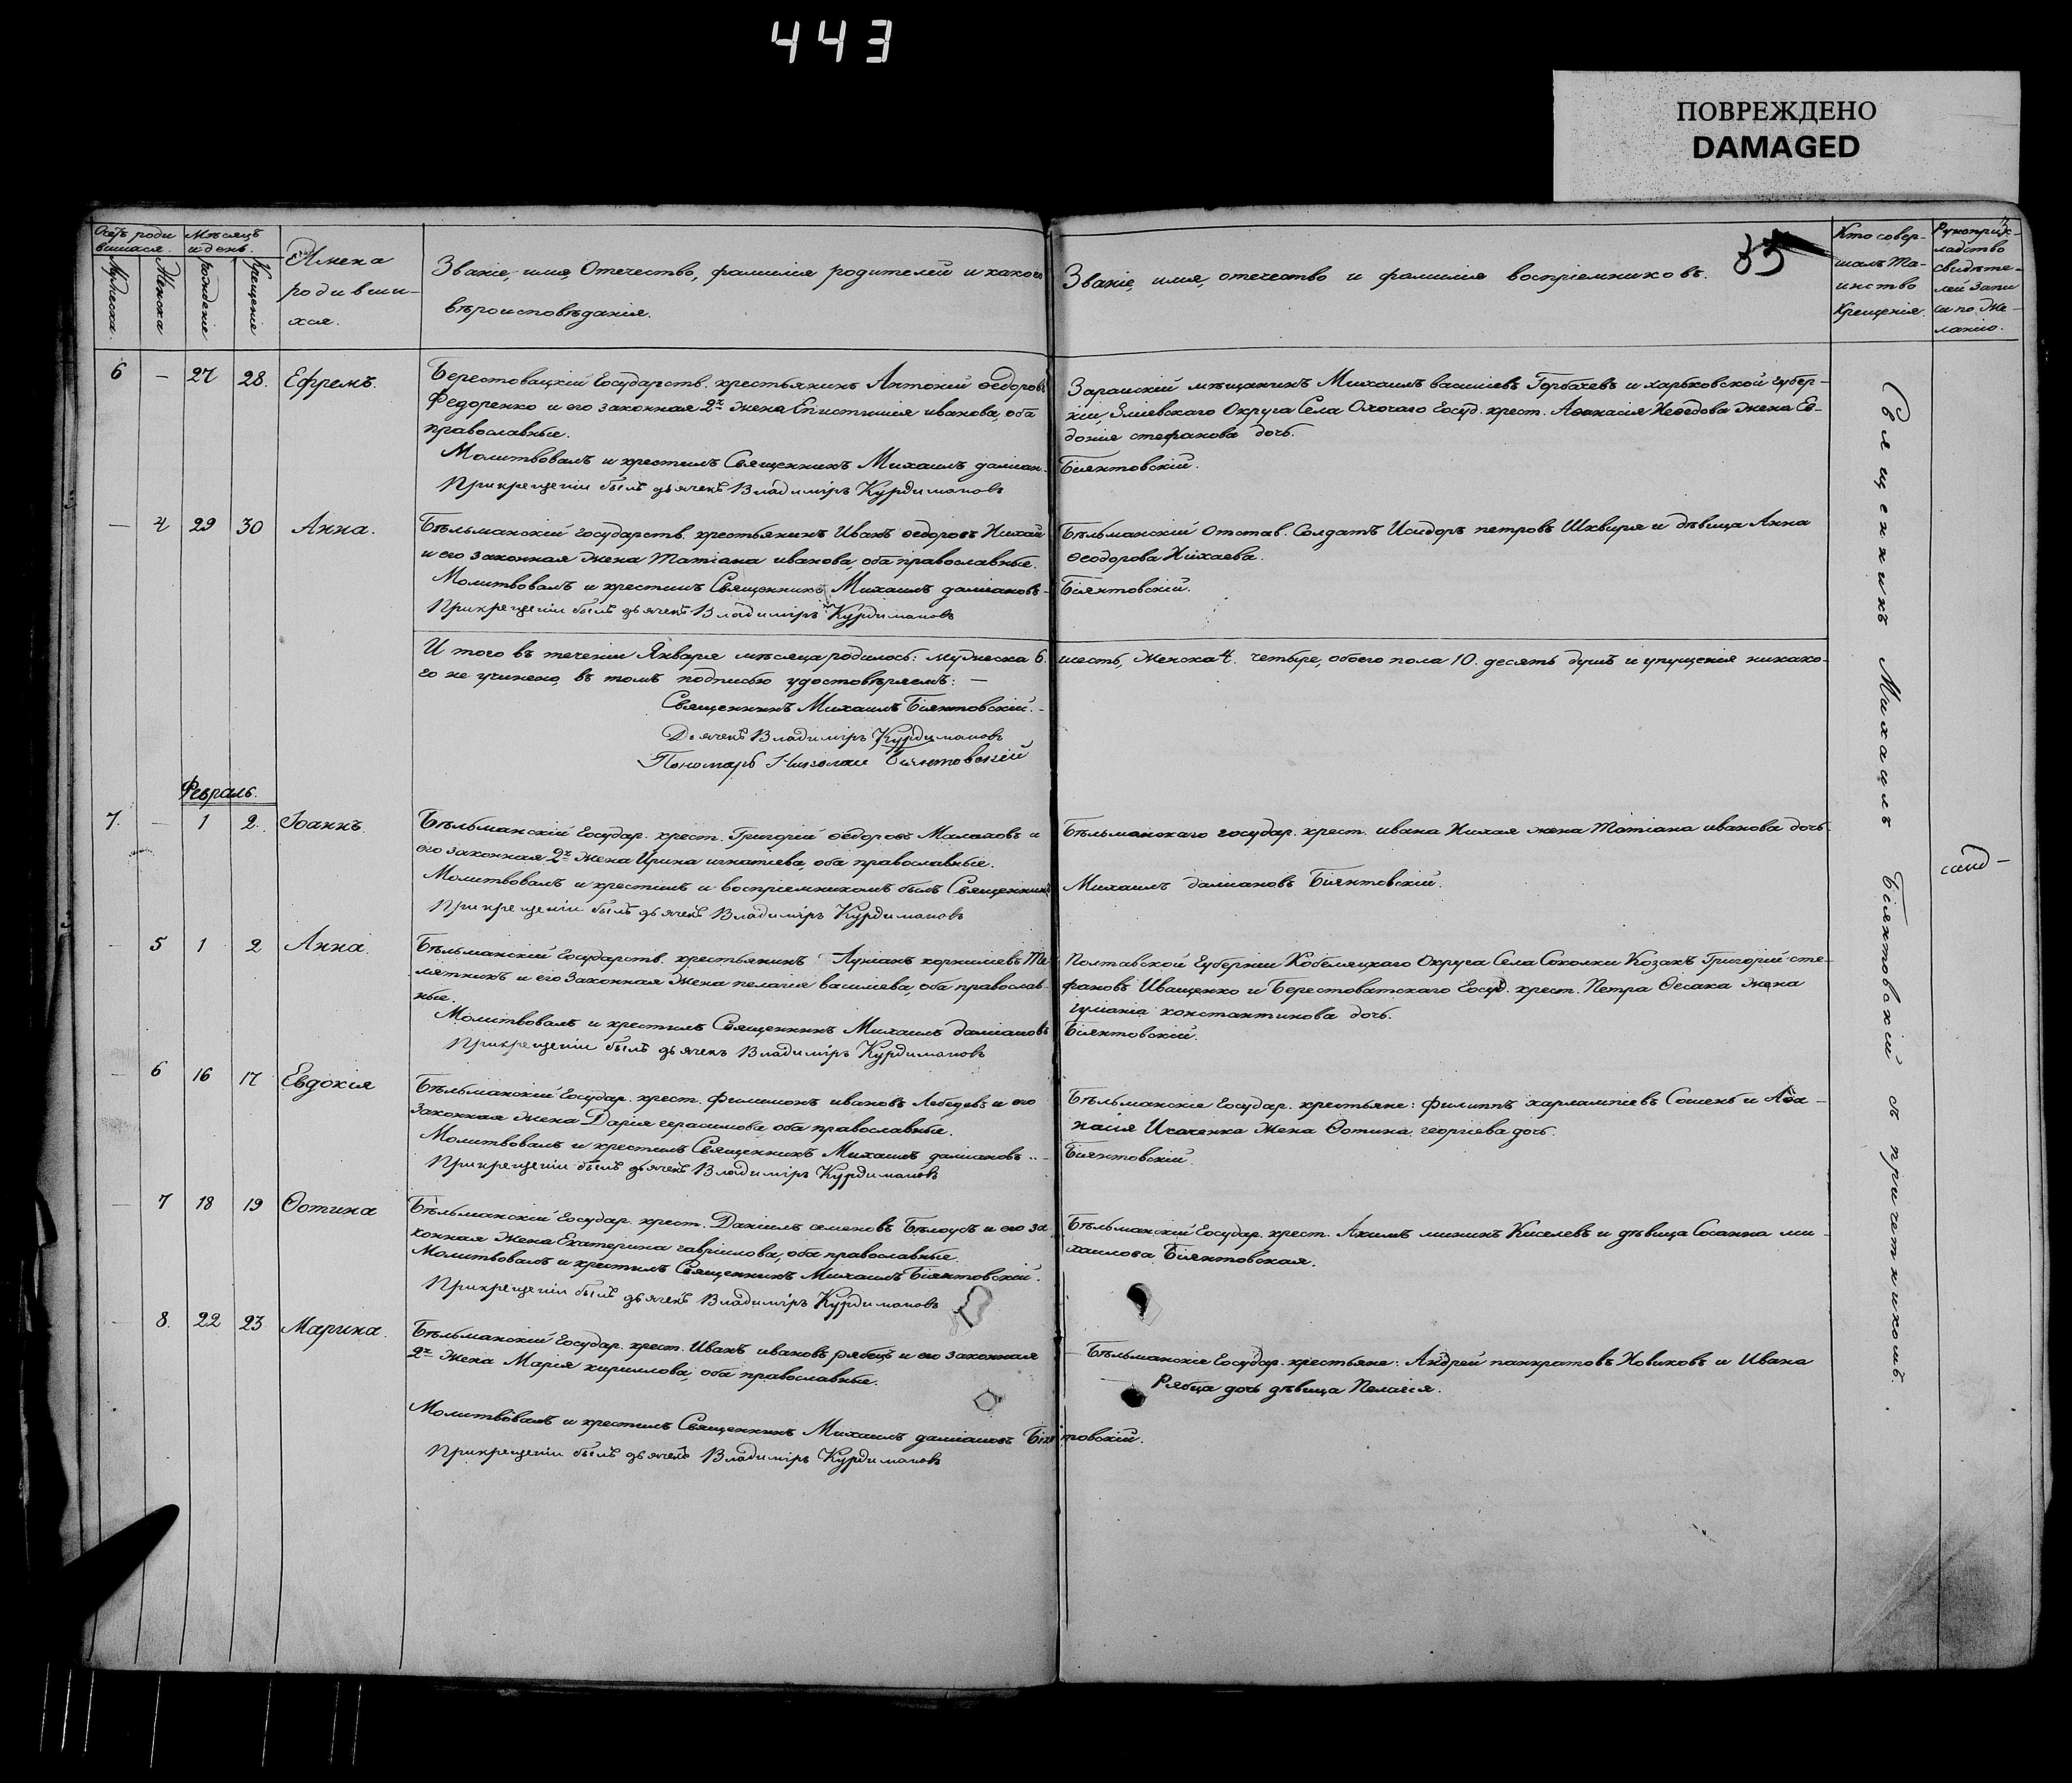 443
ПОВРЕЖДЕНО
DAMAGED
35
Счетъ роди
вшихся.
Мужеска.
Женска
Мѣсяцъ
и день.
рожденіе
Крещеніе
Имена
родивши-
хся.
Званіе, имя, Отечество, фамилія родителей и какого
вѣроисповѣданія.
Званіе, имя, отечество и фамилія воспріемниковъ.
Кто совер-
шалъ Та-
инство
Крещенія.
Рукоприк-
ладство
свидѣте-
лей запи
си по Же-
ланію.
6 — 27 28. Ефремъ.
Берестовацкій Государств. крестьянинъ Антоній Ѳедоровъ
Федоренко и его законная 2я жена Епистимія иванова, оба
православные.
Молитвовалъ и крестилъ Священникъ Михаилъ даміан-
При крещеніи былъ дьячекъ Владиміръ Курдимановъ
Зарайскій мѣщанинъ Михаилъ васильевъ Горбачевъ и харьковской губер-
ніи, Зміевскаго Округа Села Охочаго Госуд. крест. Аѳанасія Неѳедова жена Ев-
докія стефанова дочь.
Біянтовскій.
— 4 29 30 Анна.
Бѣльманскій государств. крестьянинъ Иванъ Ѳедоровъ Нихай
и его законная жена Татіана иванова, оба православные.
Молитвовалъ и крестилъ Священникъ Михаилъ даміановъ-
При крещеніи былъ дьячекъ Владиміръ Курдимановъ
Бѣльманскій Отстав. Солдатъ Исидоръ петровъ Шквиря и дѣвица Анна
Ѳеодорова Нихаева.
Біянтовскій.
И того въ теченіи Января мѣсяца родилось: мужеска 6. шесть, женска 4. четыре, обоего пола 10. десять душъ и упущенія никако-
го не учинено, въ томъ подписью удостовѣряемъ: —
Священникъ Михаилъ Біянтовскій.-
Дьячекъ Владиміръ Курдимановъ
Пономарь Николай Біянтовскій
Февраль.
7. — 1 2. Іоаннъ.
Бѣльманскій Государ. крест. Григорій Ѳедоровъ Малаховъ и
его законная 2я жена Ирина игнатіева, оба православные.
Молитвовалъ и крестилъ и воспріемникомъ былъ Священникъ
При крещеніи былъ дьячекъ Владиміръ Курдимановъ
Бѣльманскаго государ. крест. ивана Нихая жена Татіана иванова дочь.
Михаилъ даміановъ Біянтовскій.
— 5 1 2 Анна.
Бѣльманскій Государств. крестьянинъ Лукіанъ корниліевъ Те
лятникъ и его Законная жена пелагія василіева, оба православ-
ные.
Молитвовалъ и крестилъ Священникъ Михаилъ даміановъ
При крещеніи былъ дьячекъ Владиміръ Курдимановъ
Полтавской Губерніи Кобеляцкаго Округа Села Соколки Козакъ Григорій сте-
фановъ Иващенко и Берестоватскаго Госуд. крест. Петра жена
константинова дочь.
Біянтовскій.
— 6 16 17 Евдокія
Бѣльманскій Государ. крест. Филимонъ ивановъ Лебедевъ и его
Законная жена Дарія герасимова, оба православные.
Молитвовалъ и крестилъ Священникъ Михаилъ даміановъ..-
При крещеніи былъ дьячекъ Владиміръ Курдимановъ
Бѣльманскіе Государ. крестьяне: Филиппъ харлампіевъ Сошенъ и Аѳа-
насія Исаченка жена Ѳотина георгіева дочь.
Біянтовскій.
— 7 18 19 Ѳотина
Бѣльманскій Государ. крест. Даніилъ семеновъ Бѣлоусъ и его за
конная жена Екатерина гавріилова, оба православные.
Молитвовалъ и крестилъ Священникъ Михаилъ Біянтовскій.
При крещеніи былъ дьячекъ Владиміръ Курдимановъ
Бѣльманскій Государ. крест. Акимъ мининъ Киселевъ и дѣвица Сосанна ми-
хаилова Біянтовская.
— 8. 22 23 Марина.
Бѣльманскій Государ. крест. Иванъ ивановъ рябецъ и его законная
2я жена Марія кириллова, оба православные.
Молитвовалъ и крестилъ Священникъ Михаилъ даміановъ Біянтовскій.
При крещеніи былъ дьячекъ Владиміръ Курдимановъ
Бѣльманскіе Государ. крестьяне: Андрей панкратовъ Новиковъ и Ивана
Рябца дочь дѣвица Пелагія.
Священникъ Михаилъ Біянтовскій съ причетникомъ.